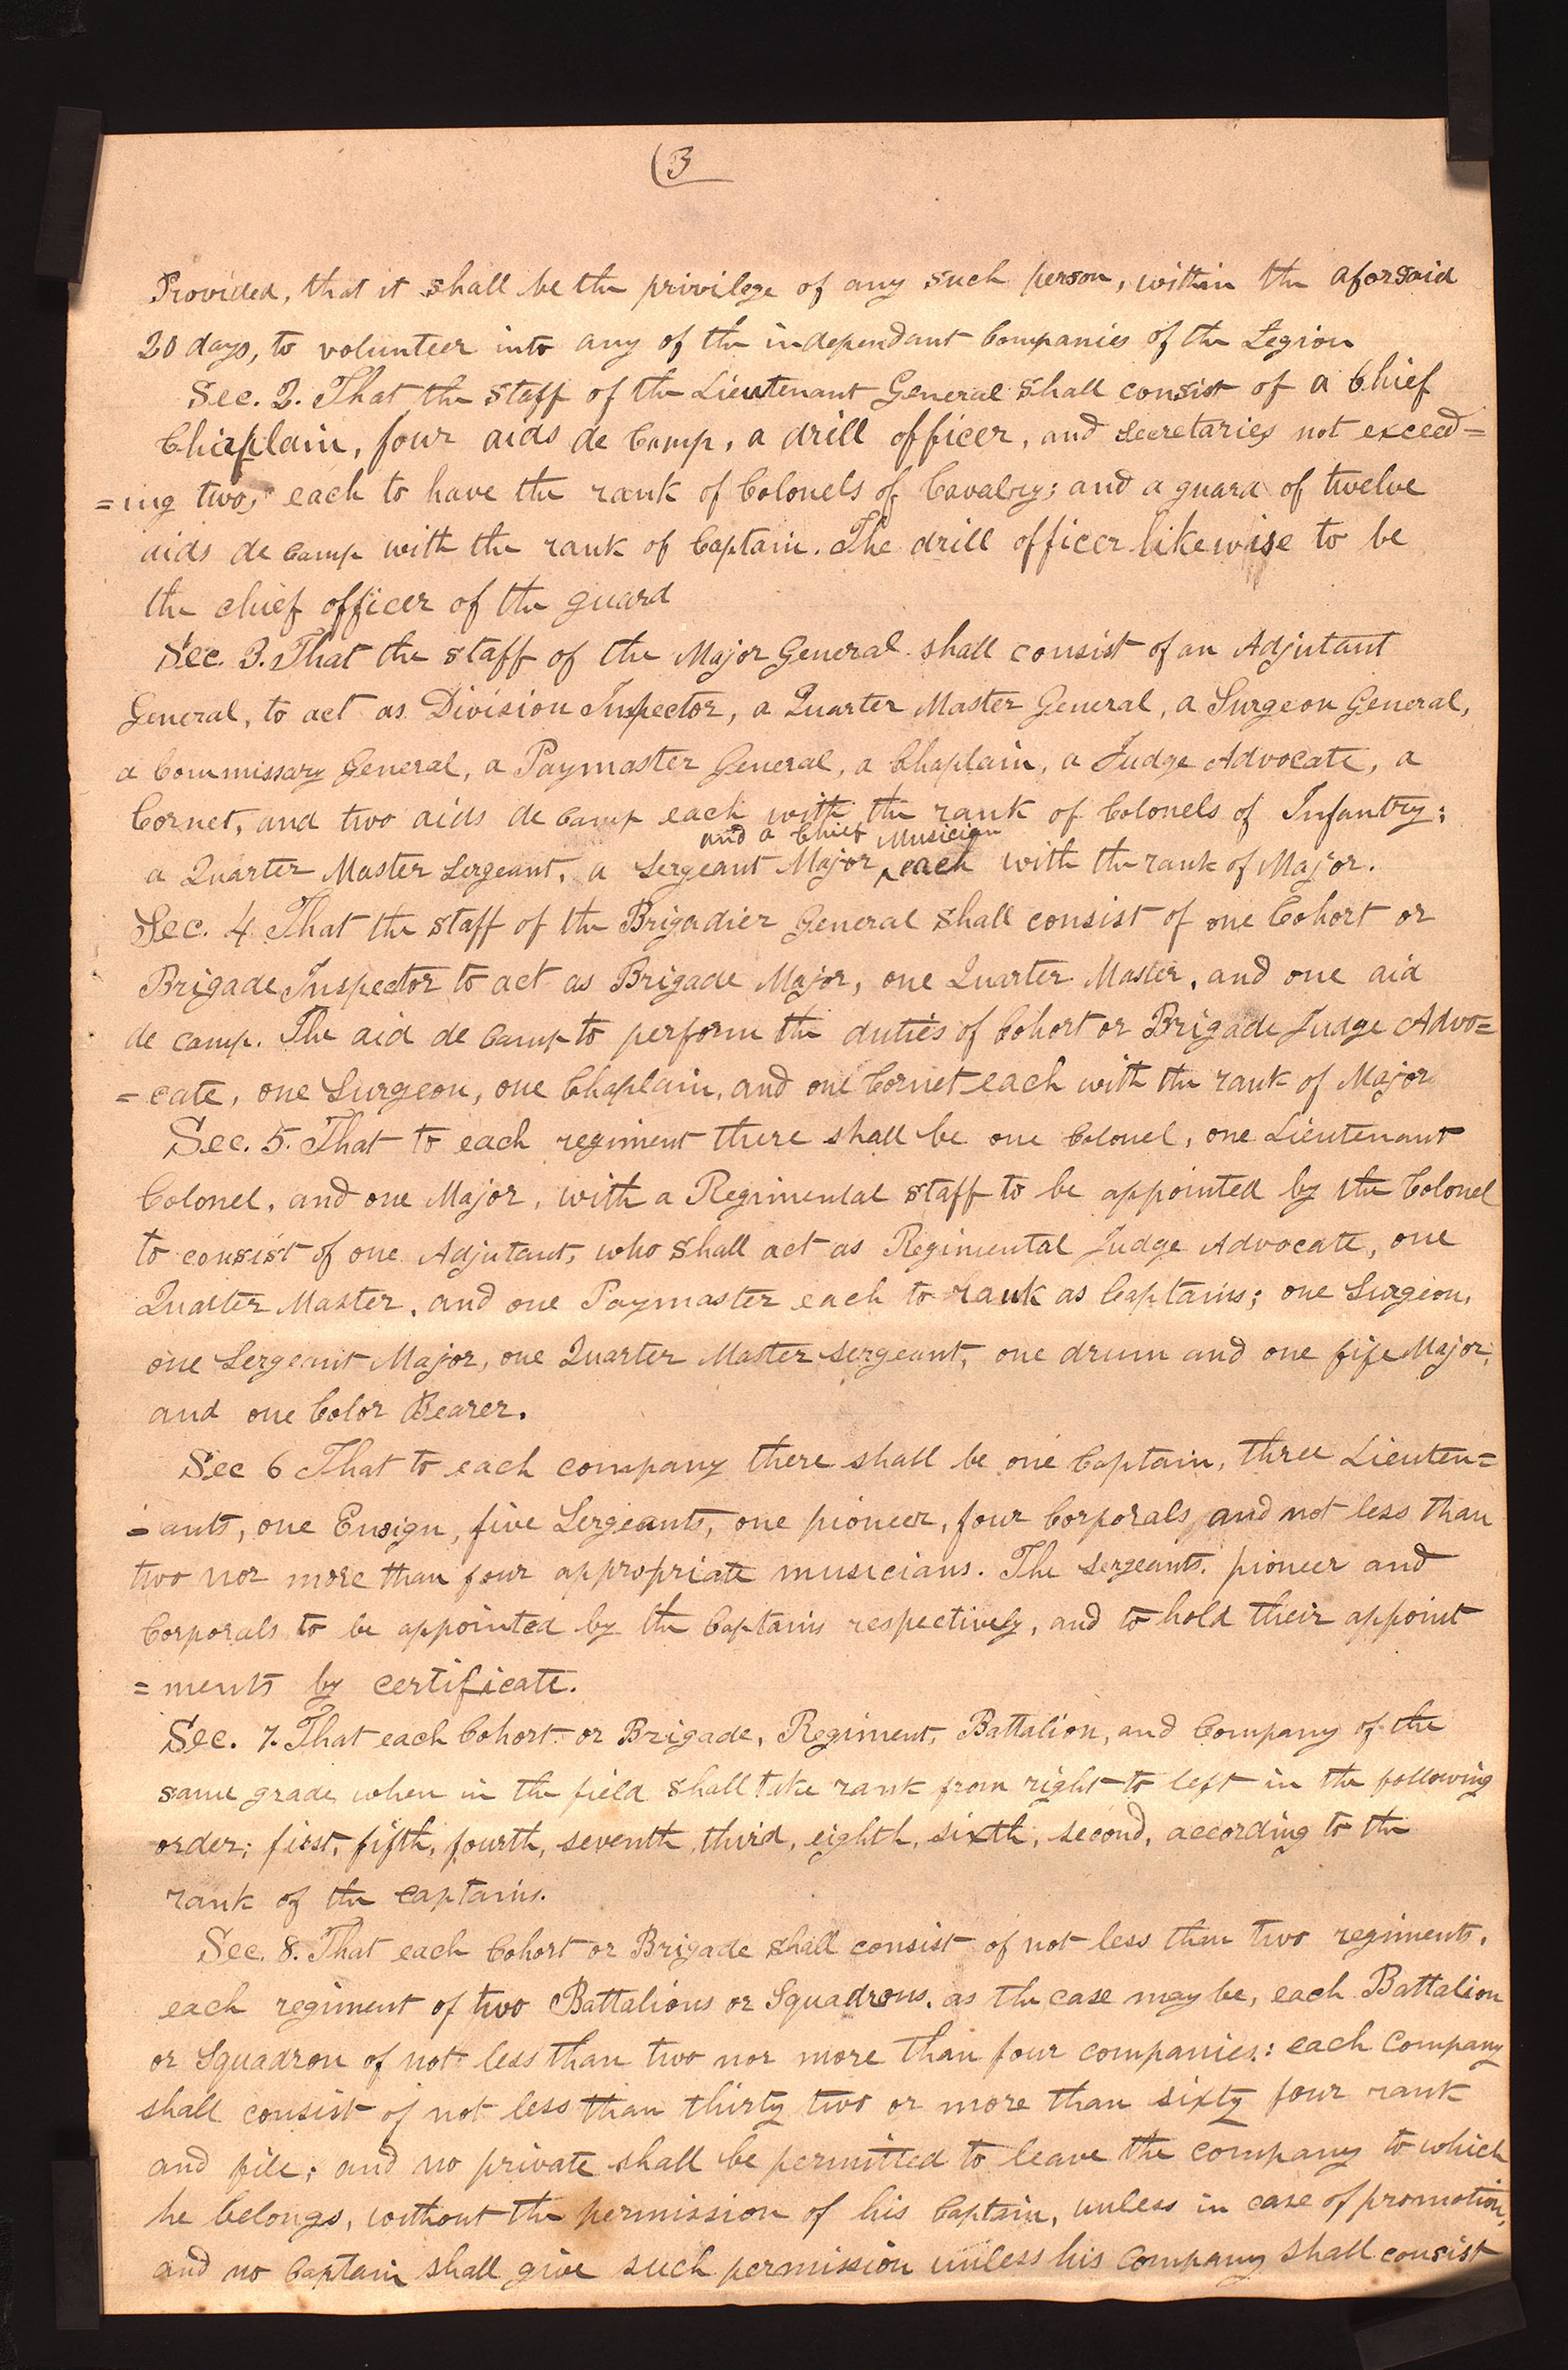 (3
Provided, that it shall be the privilege of any such person, within the aforsaid
20 days, to volunteer into any of the independant Companies of the Legion
Sec. 2. That the staff of the Lieutenant General shall consist of a Chief
Chaplain, four aids de Camp, a drill officer, and secretaries not exceed=
=ing two, each to have the rank of Colonels of Cavalry; and a guard of twelve
aids de Camp with the rank of Captain. The drill officer likewise to be
the chief officer of the guard
Sec. 3. That the staff of the Major General shall consist of an Adjutant
General, to act as Division Inspector, a Quarter Master General, a Surgeon General,
a Commissary General, a Paymaster General, a Chaplain, a Judge Advocate, a
Cornet, and two aids de Camp each with the rank of Colonels of Infantry;
and a Chief Musician
a Quarter Master Sergeant, a Sergeant Major ‸ each with the rank of Major.
Sec. 4 That the staff of the Brigadier General shall consist of one Cohort or
Brigade Inspector to act as Brigade Major, one Quarter Master, and one aid
de camp. The aid de Camp to perform the duties of Cohort or Brigade Judge Advo=
=cate, one Surgeon, one Chaplain, and one Cornet each with the rank of Major
Sec. 5. That to each regiment there shall be one Colonel, one Lieutenant
Colonel, and one Major, with a Regimental staff to be appointed by the Colonel
to consist of one Adjutant, who shall act as Regimental Judge Advocate, one
Quarter Master, and one Paymaster each to rank as Captains; one Surgeon,
one Sergeant Major, one Quarter Master Sergeant, one drum and one fife Major,
and one Color Bearer.
Sec 6 That to each company there shall be one Captain, three Lieuten=
=ants, one Ensign, five Sergeants, one pioneer, four Corporals, and not less than
two nor more than four appropriate musicians. The sergeants, pioneer and
Corporals to be appointed by the Captains respectively, and to hold their appoint
=ments by certificate.
Sec. 7. That each Cohort or Brigade, Regiment, Battalion, and Company of the
same grade when in the field shall take rank from right to left in the following
order; first, fifth, fourth, seventh, third, eighth, sixth, second, according to the
rank of the captains.
Sec. 8. That each Cohort or Brigade shall consist of not less than two regiments,
each regiment of two Battalions or Squadrons, as the case may be, each Battalion
or Squadron of not less than two nor more than four companies: each Company
shall consist of not less than thirty two or more than sixty four rank
and file; and no private shall be permitted to leave the company to which
he belongs, without the permission of his Captain, unless in case of promotion,
and no Captain shall give such permission unless his Company shall consist